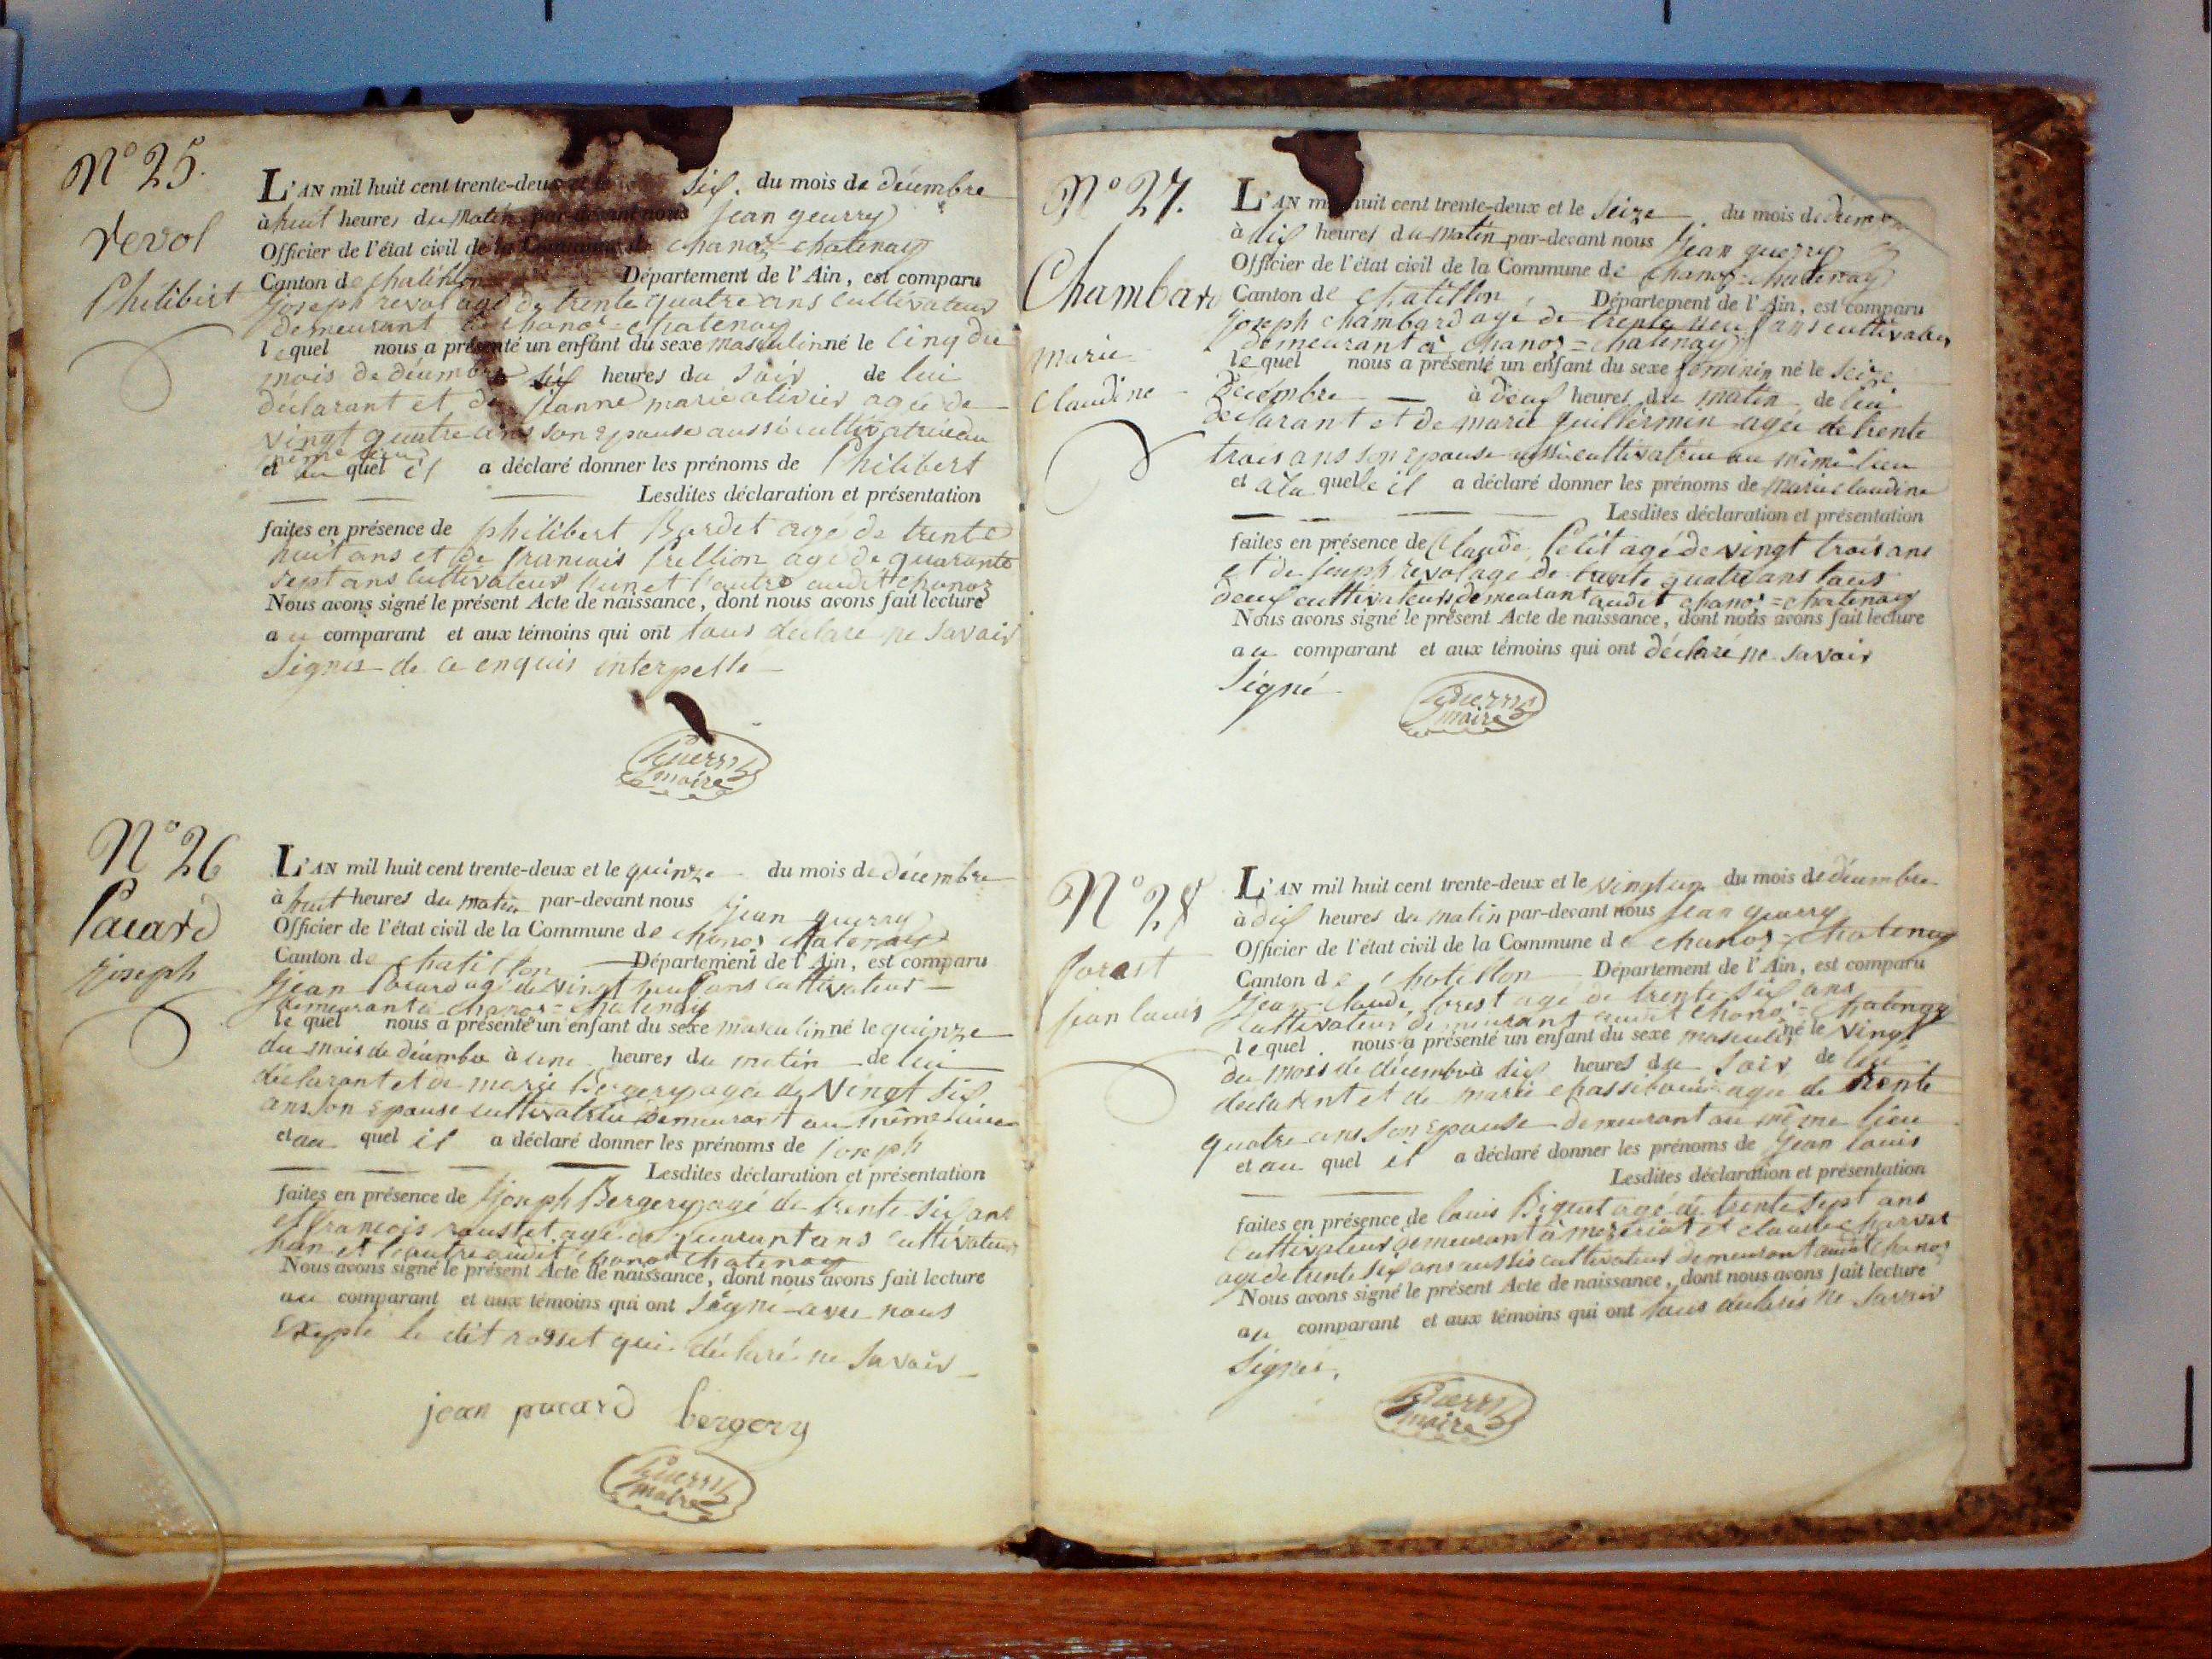 N° 25.
revol
Philibert
L'AN mil huit cent trente-deux et le six. du mois de décembre
à huit heures du matin par-devant nous jean guerry
Officier de l'état civil de la Commune de chanoz=chatenay
Canton de chatillon Département de l'Ain, est comparu
joseph revol agé de trente quatre ans cultivateur
demeurant à chanoz=chatenay
lequel nous a présenté un enfant du sexe masculin né le cinq du
mois de décembre à six heures du soir de lui
déclarant et de jeanne marie olivier agée de
vingt quatre ans son epouse aussi cultivatrice au
même lieu
et au quel il a déclaré donner les prénoms de Philibert
Lesdites déclaration et présentation
faites en présence de philibert Burdet agé de trente
huit ans et de francois agé de quarante
sept ans cultivateur l'un et l'autre audit chanoz
Nous avons signé le présent Acte de naissance, dont nous avons fait lecture
au comparant et aux témoins qui ont tous déclaré ne savoir
signer de ce enquis interpellé
Guerry
maire
N° 26
Pacard
joseph
L'AN mil huit cent trente-deux et le quinze du mois de décembre
à huit heures du matin par-devant nous jean guerry
Officier de l'état civil de la Commune de chanoz chatenay
Canton de chatillon Département de l'Ain, est comparu
jean Pacard agé de vingt neuf ans cultivateur
demeurant à chanoz=chatenay
lequel nous a présenté un enfant du sexe masculin né le quinze
du mois de décembre à une heures du matin de lui
déclarant et de marie Bergery agée de vingt six
ans son epouse cultivatrice demeurant au même lieu
et au quel il a déclaré donner les prénoms de joseph
Lesdites déclaration et présentation
faites en présence de joseph Bergery agé de trente six ans
et francois agé de quarant ans cultivateur
l'un et l'autre audit chanoz chatenay
Nous avons signé le présent Acte de naissance, dont nous avons fait lecture
au comparant et aux témoins qui ont signé avec nous
exepté le dit rosset qui déclaré ne savoir
jean pacard bergery
Guerry
maire
N° 27.
Chambard
marie
claudine
L'AN mil huit cent trente-deux et le seize du mois de décembre
à dix heures du matin par-devant nous jean guerry
Officier de l'état civil de la Commune de chanoz=chatenay
Canton de chatillon, Département de l'Ain, est comparu
joseph chambard agé de trente neuf ans cultivateur
demeurant à chanoz=chatenay
lequel nous a présenté un enfant du sexe féminin né le seize
décembre à deux heures du matin de lui
declarant et de marie guillermin agée de trente
trois ans son epouse aussi cultivatrice au même lieu
et à la quelle il a déclaré donner les prénoms de marie claudine
Lesdites déclaration et présentation
faites en présence de Claude Petit agé de vingt trois ans
et de joseph revol agé de trente quatre ans tous
deux cultivateurs demeurant audit chanoz=chatenay
Nous avons signé le présent Acte de naissance, dont nous avons fait lecture
au comparant et aux témoins qui ont déclaré ne savoir
signé
Guerry
maire
N° 28
forest
jean louis
L'AN mil huit cent trente-deux et le vingt un du mois de décembre
à dix heures du matin par-devant nous jean guerry
Officier de l'état civil de la Commune de chanoz=chatenay
Canton de chatillon Département de l'Ain, est comparu
jean claude forest agé de trente six ans
cultivateur demeurant audit chanoz=chatenay
lequel nous a présenté un enfant du sexe masculin né le vingt
du mois de décembre à dix heures du soir de lui
déclarent et de marie agée de trente
quatre ans son epouse demeurant au même lieu
et au quel il a déclaré donner les prénoms de jean louis
Lesdites déclaration et présentation
faites en présence de louis Biguet agé de trente sept ans
cultivateur demeurant à mezeriat et claude charvet
agé de trente six ans aussi cultivateur demeurant audit chanoz
Nous avons signé le présent Acte de naissance, dont nous avons fait lecture
au comparant et aux témoins qui ont tous declarés ne savoir
signer.
Guerry
maire